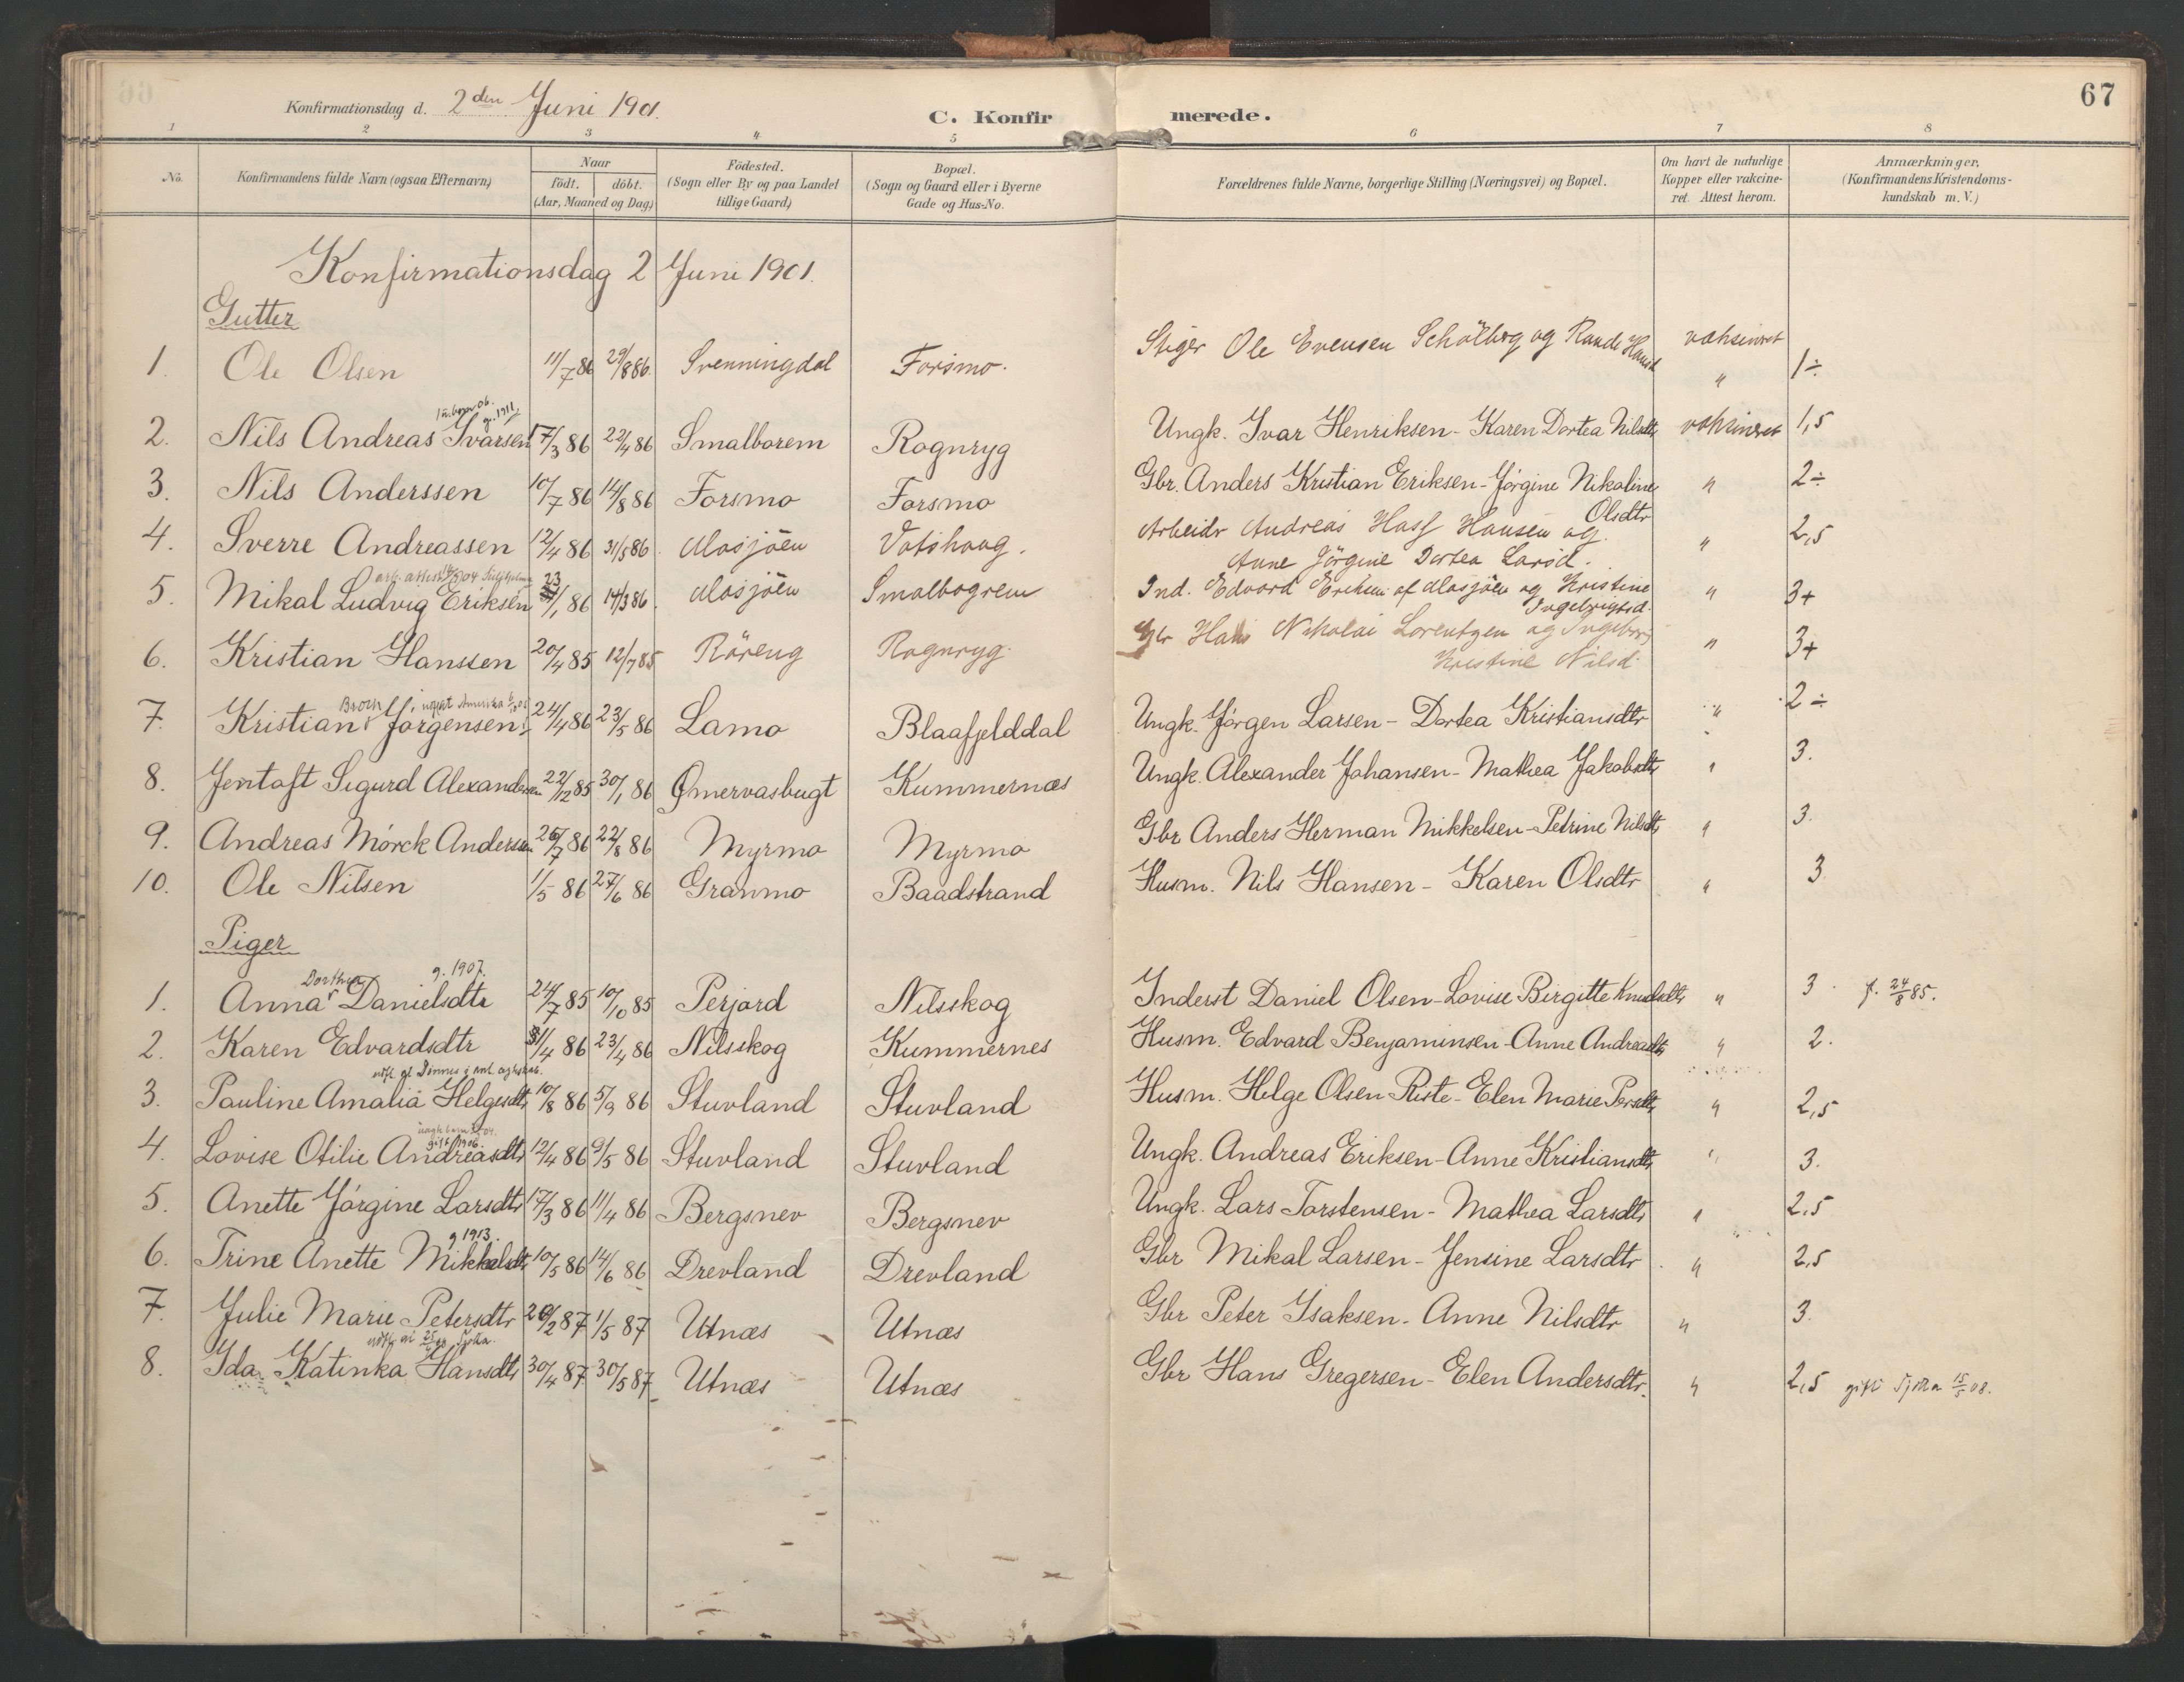 67
Konfirmationsdag d. 2den Juni 1901.
C. Konfirmerede.
1 2 3 4 5 6 7 8
No. Konfirmandens fulde Navn (ogsaa Efternavn) Naar födt. döbt. (Aar, Maaned og Dag) Födested. (Sogn eller By og paa Landet tillige Gaard) Bopæl. (Sogn og Gaard eller i Byerne Gade og Hus-No. Forældrenes fulde Navne, borgerlige Stilling (Næringsvei) og Bopæl. Om havt de naturlige Kopper eller vakcineret. Attest herom. Anmærkninger, (Konfirmandens Kristendomskundskab m. V.)
Konfirmationsdag 2 Juni 1901.
Gutter
1. Ole Olsen 11/7 86 29/8 86. Svenningdal Forsmo. Stiger Ole Evensen Schölberg og Hansd. vaksineret " 1÷
g. 1911
2. Nils Andreas Ivarsen 17/3 86 22/4 86 Smalborem Rognryg Ungk. Ivar Henriksen - Karen Dortea Nilsdtr vaksineret 1,5
3. Nils Anderssen 10/7 86 14/8 86 Forsmo Forsmo Gbr. Anders Kristian Eriksen - Jörgine Nikoline Olsdtr " 2÷
4. Sverre Andreassen 12/4 86 31/5 86 Mosjöen Vatshaug. Arbeider Andreas Hansen og Anne Jörgine Dortea Larsd. " 2,5
5. Mikal Ludvig Eriksen 23/1 86 14/3 86. Mosjöen Smalbogrem Ind. Edvard Eriksen af Mosjöen og Kristine Ingebrigtsd. " 3+
6. Kristian Hanssen 20/4 85 12/7 85 Röreng Rognryg. Gbr Hans Nikolai Lorentzen og Ingeborg Kristine Nilsd. " 3+
7. Kristian Jörgensen 24/4 86 23/5 86 Lamo Blaafjelddal Ungk. Jörgen Larsen - Dortea Kristiansdtr " 2÷
8. Jentoft Sigurd Alexandersen 22/12 85 30/1 86 Ömervasbugt Kummernæs Ungk. Alexander Johansen - Mathea Jakobsdtr " 3.
9. Andreas Mörck Andersen 26/7 86 22/8 86 Myrmo Myrmo Gbr Anders Herman Mikkelsen - Petrine Nilsdtr " 3.
10. Ole Nilsen 1/5 86 27/6 86 Granmo Baadstrand Husm. Nils Hansen - Karen Olsdtr " 3.
Piger
Dorthea g. 1907.
1. Anna Danielsdtr 24/7 85 10/10 85 Perjord Nilsskog Inderst Daniel Olsen - Lovise Birgitte Knudsdtr " 3. f. 24/8 85.
2. Karen Edvardsdtr 11/4 86 23/4 86 Nilsskog Kummernes Husm. Edvard Benjaminsen - Anne Andreasdtr " 2.
3. Pauline Amalia Helgesdtr 10/8 86 5/9 86 Stuvland Stuvland Husm. Helge Olsen Riste - Elen Marie Persdtr " 2,5
gift 1906.
4. Lovise Otilie Andreasdtr 12/4 86 9/5 86 Stuvland Stuvland Ungk. Andreas Eriksen - Anne Kristiansdtr " 3.
5. Anette Jörgine Larsdtr 17/3 86 11/4 86 Bergsnev Bergsnev Ungk. Lars Torstensen - Mathea Larsdtr " 2.5
g 1913.
6. Trine Anette Mikkelsdtr 10/5 86 14/6 86 Drevland Drevland Gbr Mikal Larsen - Jensine Larsdtr " 2.5
7. Julie Marie Petersdtr 26/2 87 1/5 87 Utnæs Utnæs Gbr Peter Isaksen - Anne Nilsdtr " 3.
8. Ida Katinka Hansdtr 30/4 87 30/5 87 Utnæs Utnæs Gbr Hans Gregersen - Elen Andersdtr. " 2,5 gift Tjötta 15/5 08.